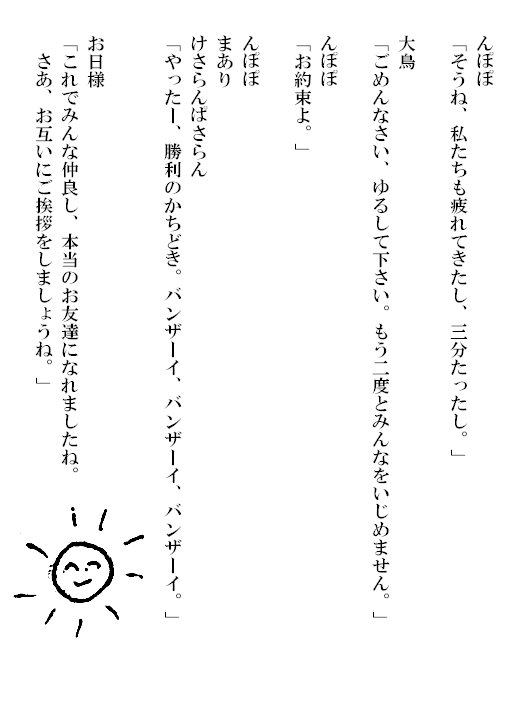 んぽぽ
「そうね、私たちも疲れてきたし、三分たったし。」
大鳥
「ごめんなさい、ゆるして下さい。もう二度とみんなをいじめません。」
んぽぽ
「お約束よ。」
んぽぽ
まあり
けさらんぱさらん
「やったー、勝利のかちどき。バンザーイ、バンザーイ、バンザーイ。」
お日様
「これでみんな仲良し、本当のお友達になれましたね。
さあ、お互いにご挨拶をしましょうね。」